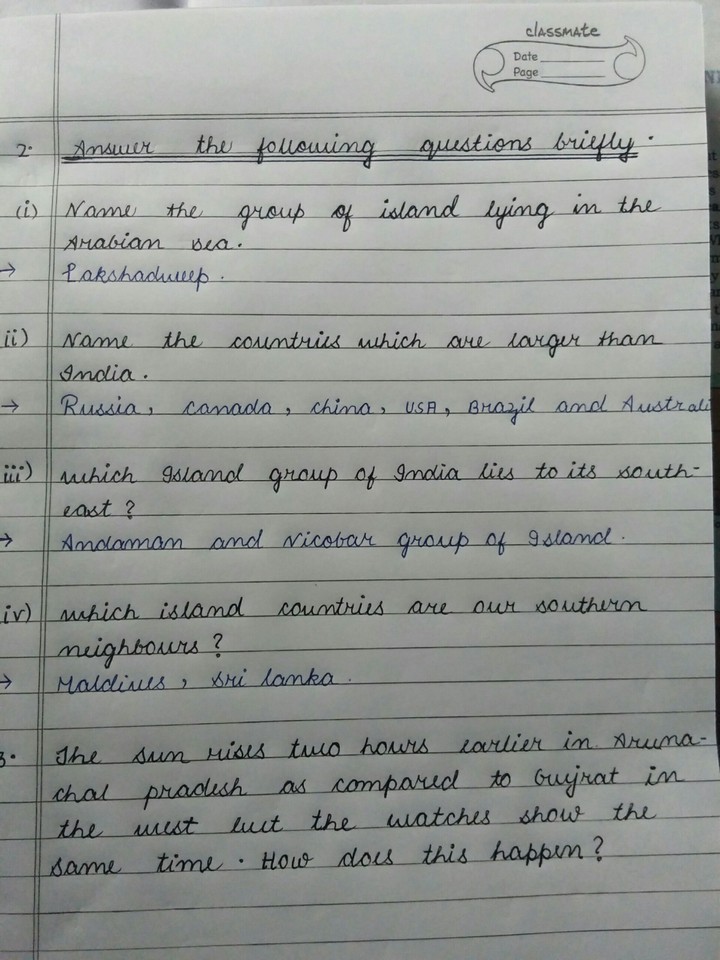 classmate
Date
Page
2. Answer the following questions briefly.
(i) Name the group of island lying in the
Arabian sea.
→ Lakshadweep.
ii) Name the countries which are larger than
India.
→ Russia, Canada, China, USA, Brazil and Australi
iii) which Island group of India lies to its south-
east?
→ Andaman and Nicobar group of Island.
iv) which island countries are our southern
neighbours?
→ Maldives, Sri lanka.
3. The sun rises two hours earlier in Aruna-
chal pradesh as compared to Gujrat in
the west but the watches show the
same time. How does this happen?